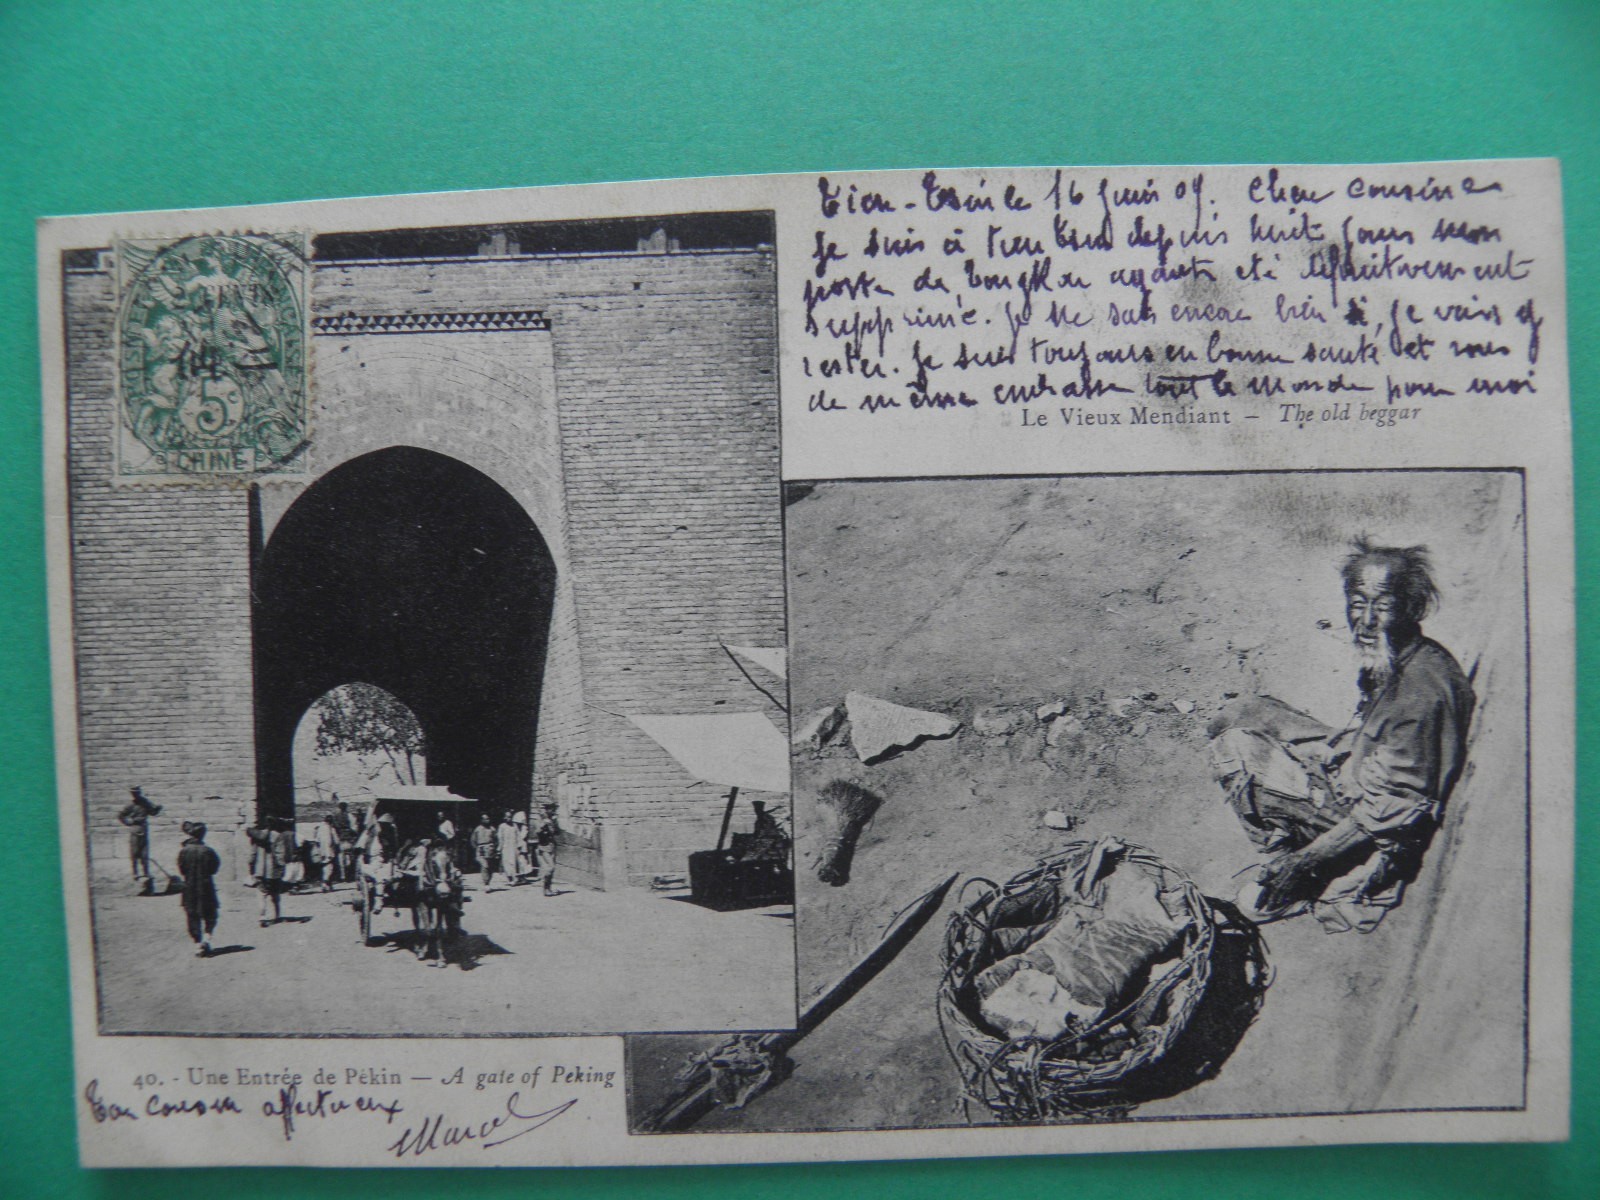 Tien-Tsin le 16 Juin 09. Chère cousine
Je suis à Tien Tsin depuis huit jours mon
poste de Tongkou ayant été définitivement
supprimé. Je ne sais encore bien si je vais y
rester. Je suis toujours en bonne santé et vous
de même embrasse tout le monde pour moi
Le Vieux Mendiant — The old beggar
2 CENTS
5c
CHINE
40. - Une Entrée de Pékin — A gate of Peking
Ton cousin affectueux
Marcel